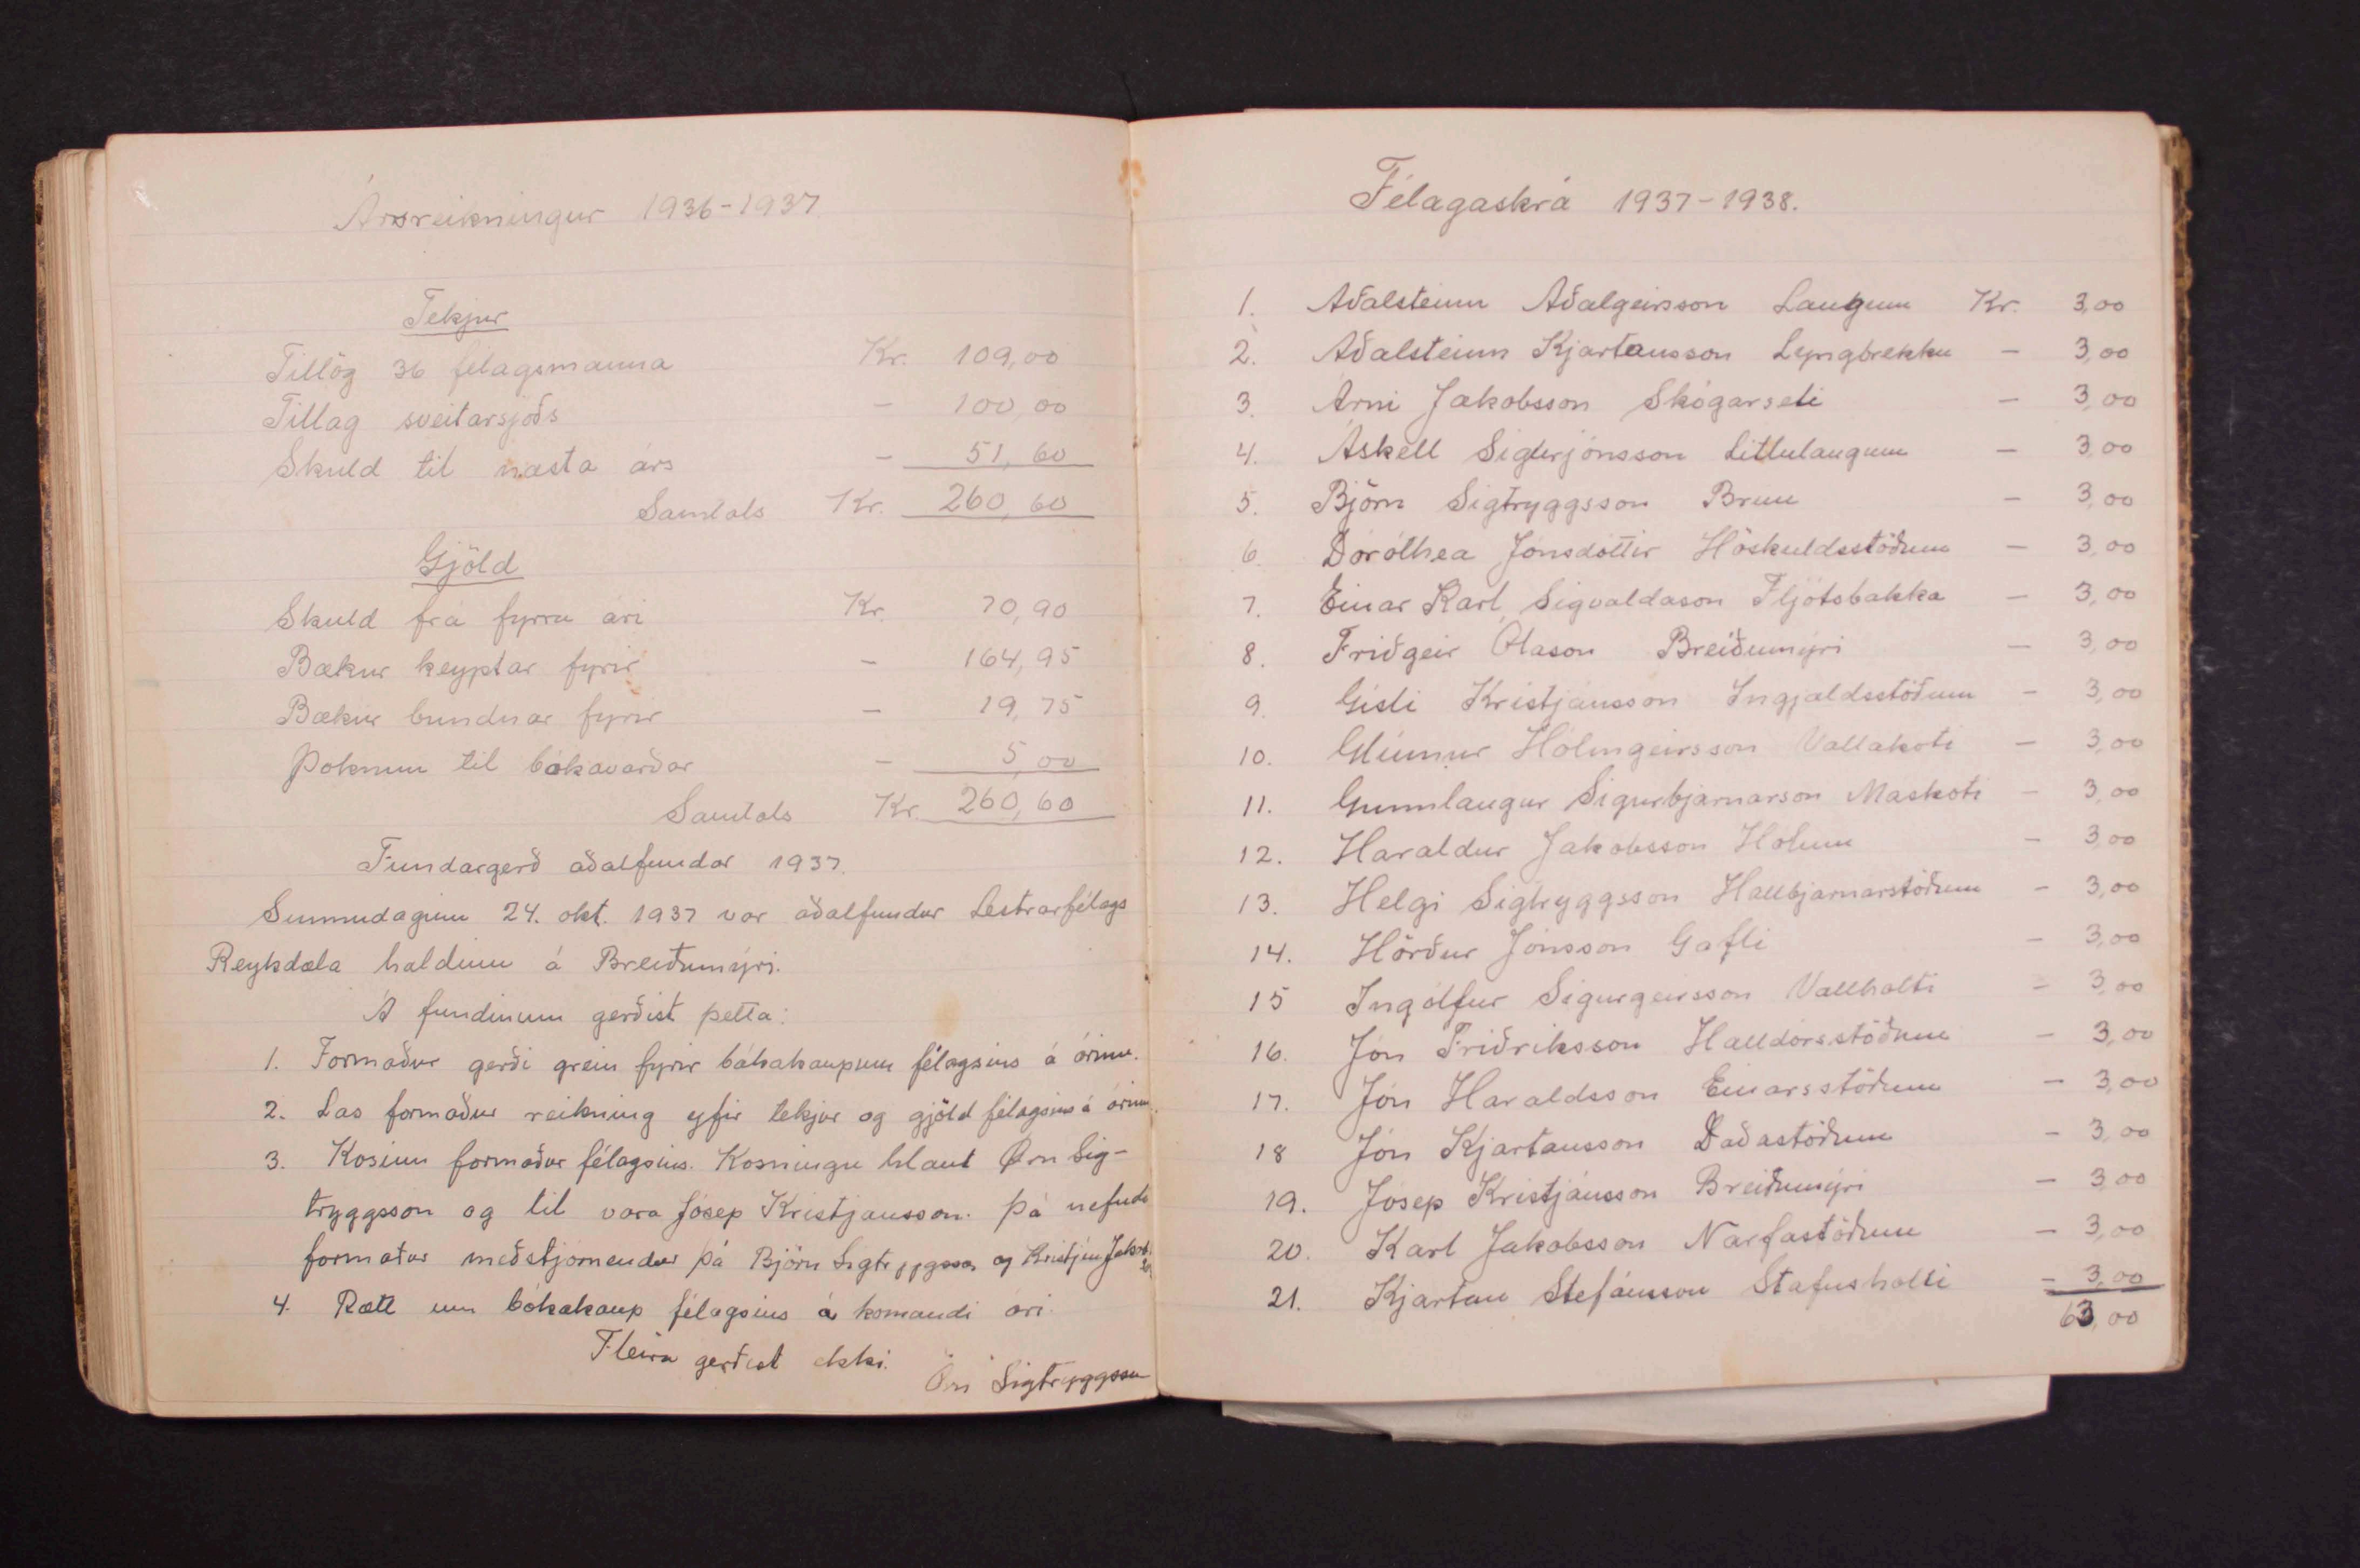 Ársreikningur 1936-1937
Tekjur
Tillög 36 félagsmanna Kr. 109,00
Tillag sveitarsjóðs - 100,00
Skuld til næsta árs - 51,60
Samtals Kr. 260,60
Gjöld
Skuld frá fyrra ári Kr. 70,90
Bækur keyptar fyrir - 164,95
Bækur bundnar fyrir - 19,75
Þoknun til bókavarðar - 5,00
Samtals Kr. 260,60
Fundargerð aðalfundar 1937.
Sunnudaginn 24. okt. 1937 var aðalfundur Lestrarfélags
Reykdæla haldinn á Breiðumýri.
Á fundinum gerðist þetta:
1. Formaður gerði grein fyrir bókakaupum félagsins á árinu.
2. Las formaður reikning yfir tekjur og gjöld félagsins á árinu.
3. Kosinn formaður félagsins. Kosningu hlaut Örn Sig-
tryggsson og til vara Jósep Kristjánsson. Þá nefndi
formaður meðstjórnendur þá Björn Sigtryggsson og Kristján Jakobs
son
4. Rætt um bókakaup félagsins á komandi ári.
Fleira gerðist ekki.
Örn Sigtryggsson
Félagaskrá 1937-1938.
1. Aðalsteinn Aðalgeirsson Laugum Kr. 3,00
2. Aðalsteinn Kjartansson Lyngbrekku - 3,00
3. Árni Jakobsson Skógarseli - 3,00
4. Áskell Sigurjónsson Litlulaugum - 3,00
5. Björn Sigtryggsson Brun - 3,00
6. Dóróthea Jónsdóttir Höskuldsstöðum - 3,00
7. Einar Karl Sigvaldason Fljótsbakka - 3,00
8. Friðgeir Ólason Breiðumýri - 3,00
9. Gísli Kristjánsson Ingjaldsstöðum - 3,00
10. Glúmur Hólmgeirsson Vallakoti - 3,00
11. Gunnlaugur Sigurbjarnarson Máskoti - 3,00
12. Haraldur Jakobsson Hólum - 3,00
13. Helgi Sigtryggsson Hallbjarnarstöðum - 3,00
14. Hörður Jónsson Gafli - 3,00
15 Ingólfur Sigurgeirsson Vallholti - 3,00
16. Jón Friðriksson Halldórsstöðum - 3,00
17. Jón Haraldsson Einarsstöðum - 3,00
18 Jón Kjartansson Daðastöðum - 3,00
19. Jósep Kristjánsson Breiðumýri - 3,00
20. Karl Jakobsson Narfastöðum - 3,00
21. Kjartan Stefánsson Stafnsholti - 3,00
63,00